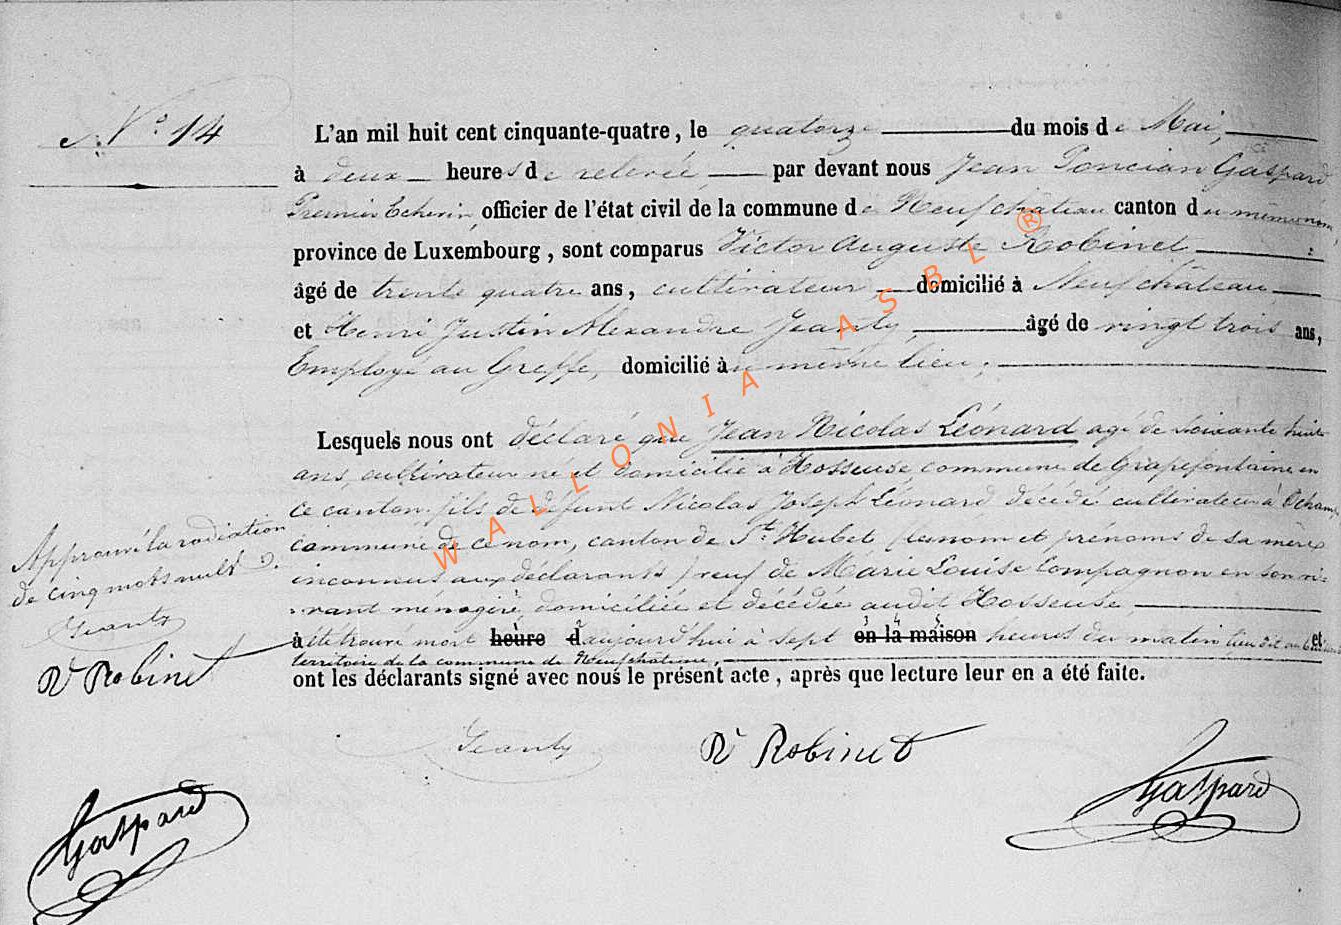 N.° 14
L'an mil huit cent cinquante-quatre, le quatorze du mois de Mai,
à deux heures de relevée, par devant nous Jean Poncian Gaspard
Premier Echevin, officier de l'état civil de la commune de Neufchâteau canton du même nom,
province de Luxembourg, sont comparus Victor Auguste Robinet,
âgé de trente quatre ans, cultivateur, domicilié à Neufchâteau,
et Henri Justin Alexandre Jeanty, âgé de vingt trois ans,
Employé au Greffe, domicilié au même lieu;
Lesquels nous ont déclaré que Jean Nicolas Léonard agé de soixante huit
ans, cultivateur né et domicilié à Hosseuse commune de Grapefontaine en
ce canton fils de défunt Nicolas Joseph Léonard décédé cultivateur à Ochamp
commune de ce nom, canton de St. Hubet (le nom et prénoms de sa mère
inconnus aux déclarants) veuf de Marie Louise Compagnon en son vi-
vant ménagère, domiciliée et décédée audit Hosseuse
à été trouvé mort heure d aujourd'hui à sept en la maison heures du matin lieu dit et
territoire de la commune de Neufchâteau,
ont les déclarants signé avec nous le présent acte, après que lecture leur en a été faite.
Approuvé la radiation
de cinq mots nuls
Jeanty
Vr Robinet
Gaspard
Jeanty
Vr Robinet
Gaspard
WALLONIA ASBL ®